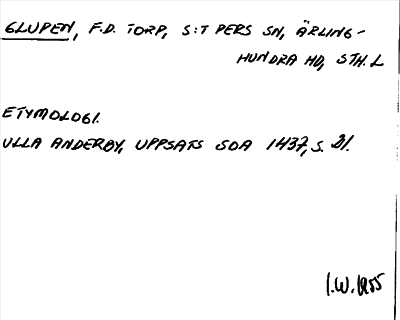 GLUPEN, F.D. TORP, S:T PERS SN, ÄRLING-
HUNDRA HD, STH. L
ETYMOLOGI.
ULLA ANDERBY, UPPSATS SOA 1437, S. 21.
I.W. 1955